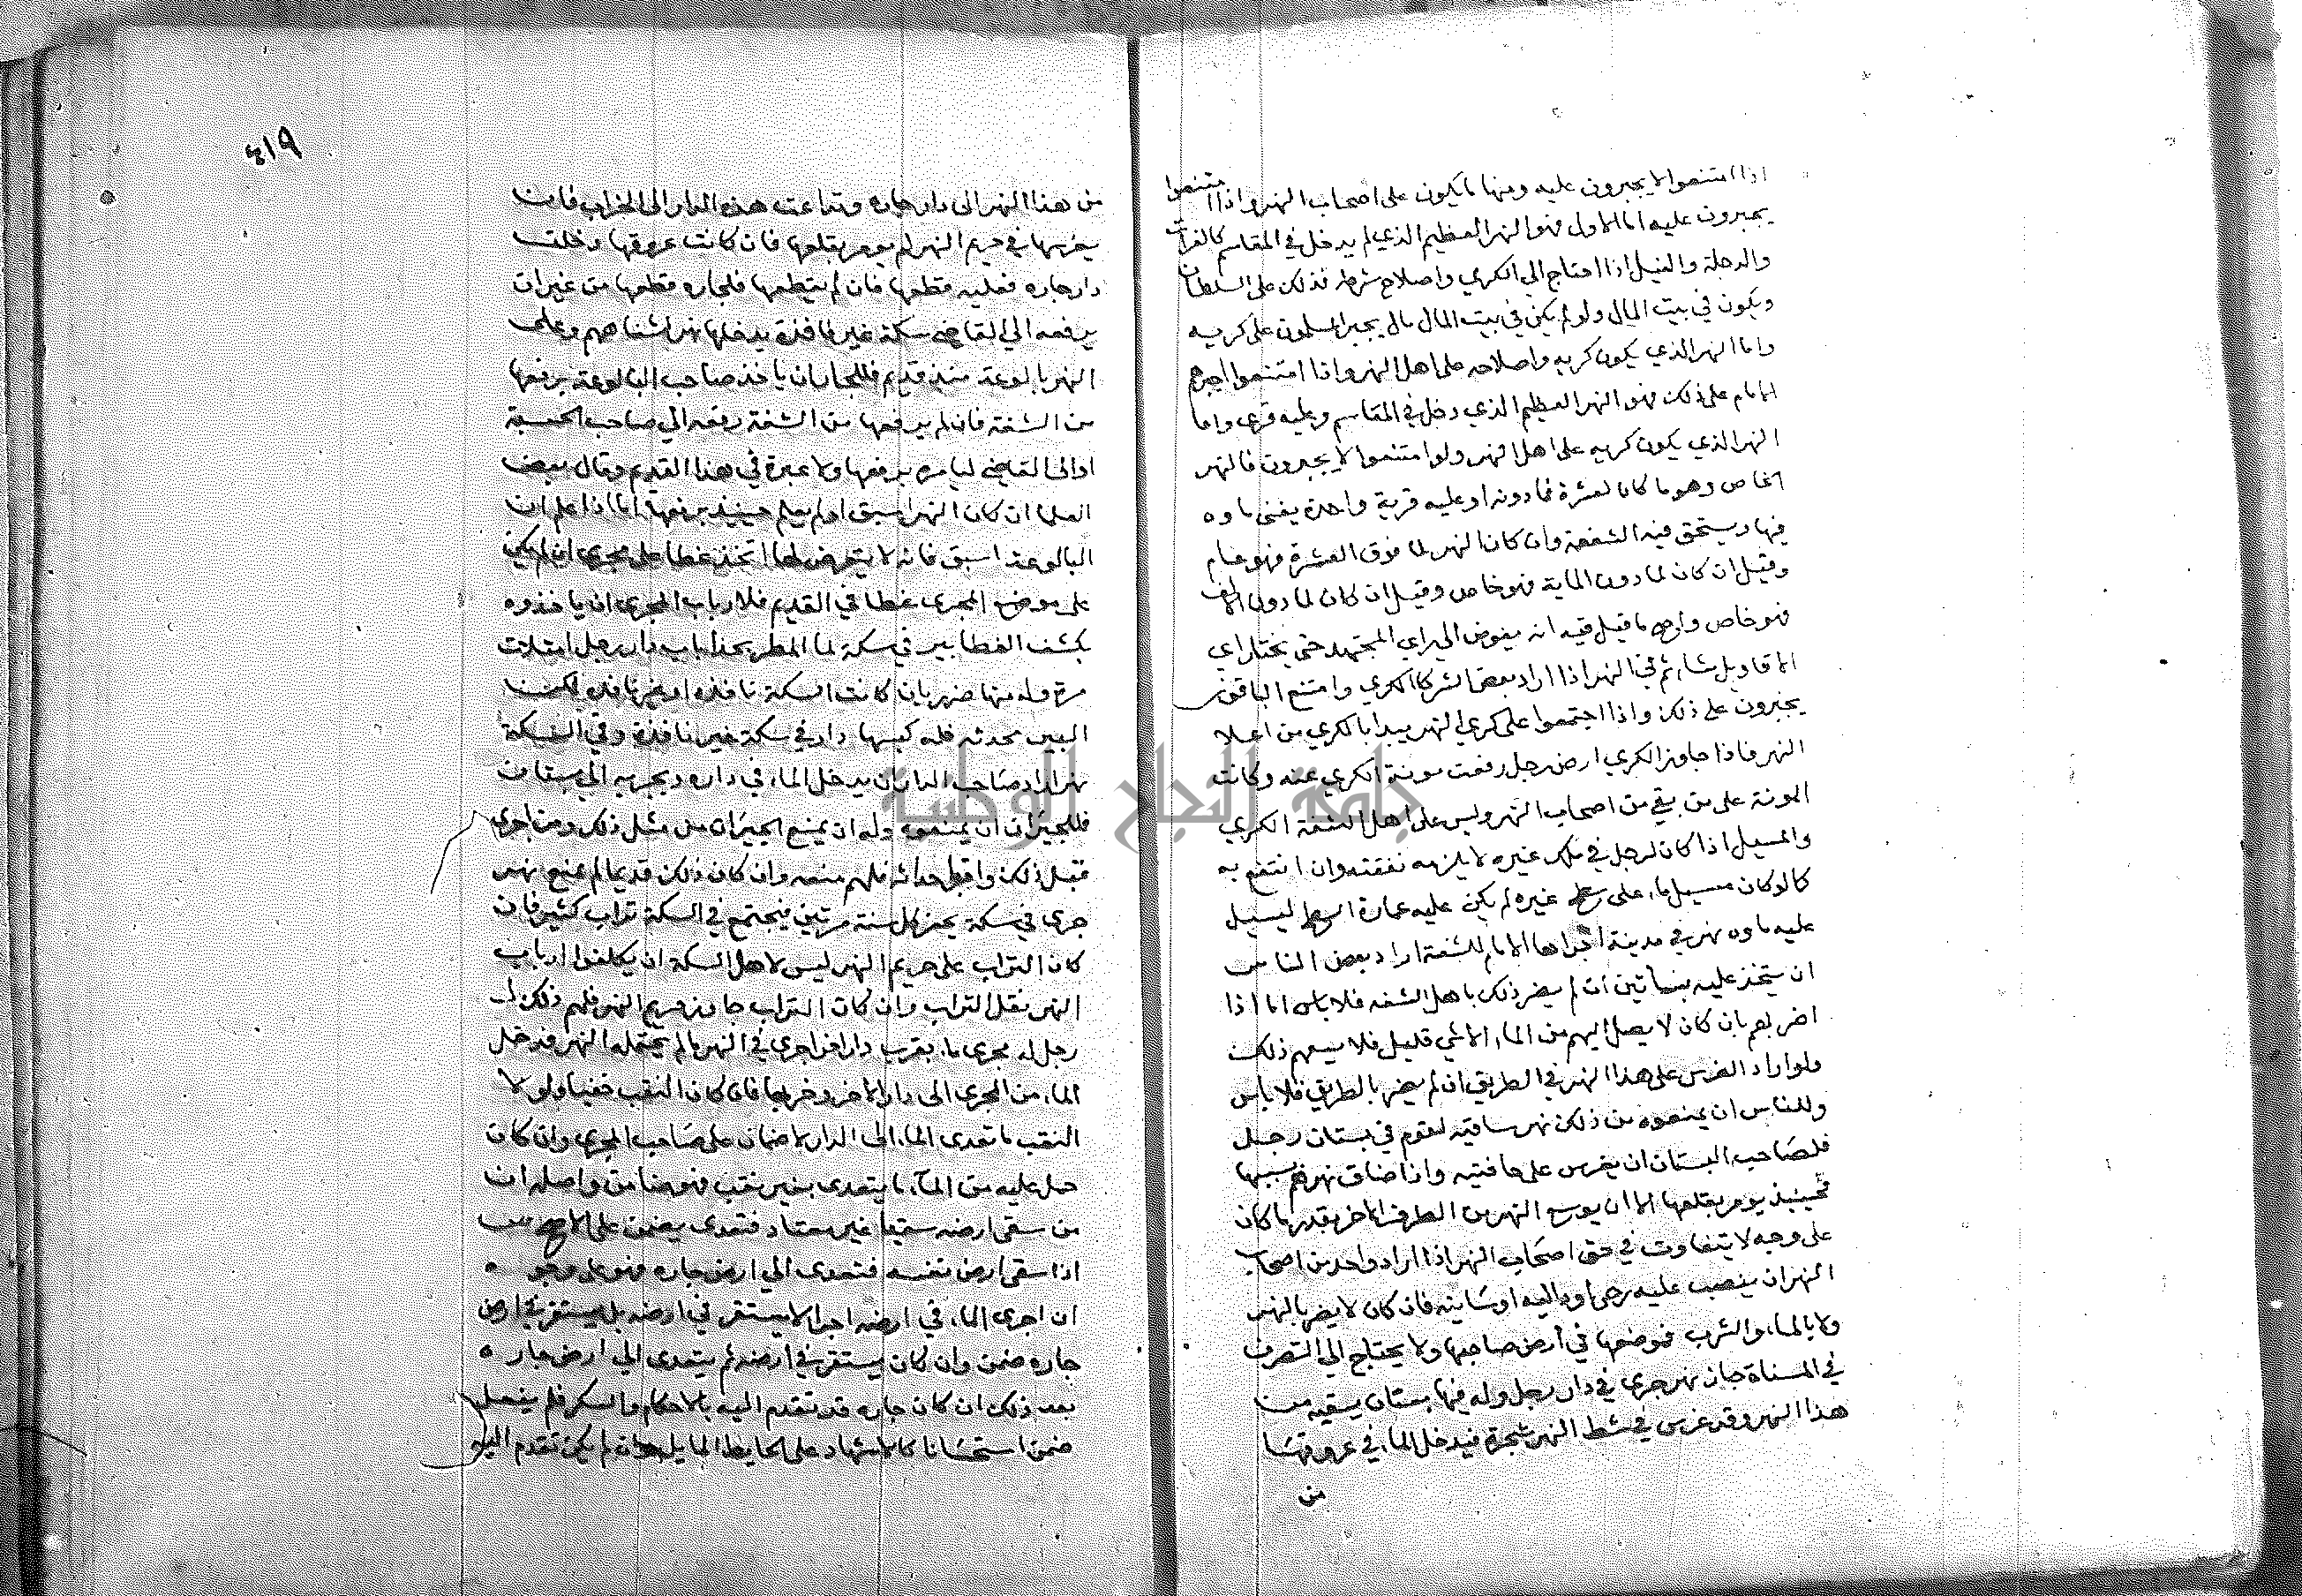 اذا امتنعوا لا يجبرون عليه ومنها ما يكون على اصحاب النهر واذا امتنعوا
يجبرون عليه اما الاول فهو النهر العظيم الذي لم يدخل في المقاسم كالفرات
والدجلة والنيل اذا احتاج الى الكري واصلاح شطه فذلك على السلطان
ويكون في بيت المال ولو لم يكن في بيت المال مال يجبر المسلمون على كريه
واما النهر الذي يكون كريه واصلاحه على اهل النهر واذا امتنعوا اجبرهم
الامام على ذلك فهو النهر العظيم الذي دخل في المقاسم وعليه قرى واما
النهر الذي يكون كريه على اهل النهر ولو امتنعوا لا يجبرون فالنهر
الخاص وهو ما كان لعشرة فما دونه او عليه قرية واحدة يفنى ماوه
فيها ويستحق فيه الشفعة وان كان النهر لما فوق العشرة فهو عام
وقيل ان كان لما دون الماية فهو خاص وقيل ان كان لما دون الالف
فهو خاص واصح ما قيل فيه انه يفوض الى راي المجتهد حتى يختار اي
الاقاويل شاء ثم في النهر اذا اراد بعض الشركا الكري وامتنع الباقون
يجبرون على ذلك واذا اجتمعوا على كري النهر يبدا بالكري من اعلا
النهر فاذا جاوز الكري ارض رجل رفعت مونة الكري عنه وكانت
المونة على من بقي من اصحاب النهر وليس على اهل الشفة الكري
والمسيل اذا كان لرجل في ملك غيره لا يلزمه نفقته وان انتفع به
كالو كان مسيل ماء على سطح غيره لم يكن عليه عمارة السطح ليسيل
عليه ماوه نهر في مدينة اجراها الامام للشفة اراد بعض الناس
ان يتخذ عليه بساتين ان لم يضر ذلك باهل الشفه فلا باس اما اذا
اضر بهم بان كان لا يصل اليهم من الماء الا شي قليل فلا يسعهم ذلك
ولو اراد الغرس على هذا النهر في الطريق ان لم يضر بالطريق فلا باس
وللناس ان يمنعوه من ذلك نهر ساقيه لقوم في بستان رجل
فلصاحب البستان ان يغرس على حافتيه واذا ضاق نهرهم بسببها
فحينيذ يومر بقلعها الا ان يوسع النهر من الطرف الاخر بقدر ما كان
على وجه لا يتفاوت في حق اصحاب النهر اذا اراد واحد من اصحاب
النهر ان ينصب عليه رحى او داليه او سانيه فان كان لا يضر بالنهر
ولا بالماء والشرب فموضعها في ارض صاحبها ولا يحتاج الى التصرف
في المسناة جاز نهر جرى في دار رجل وله فيها بستان يسقيه من
هذا النهر وقد غرس في شط النهر شجرة فيدخل الماء في عروقها
من
٤١٩
من هذا النهر الى دار جاره وتداعت هذه الدار الى الخراب فان
غرسها في حريم النهر لم يومر بقلعها فان كانت عروقها دخلت
دار جاره فعليه قطعها فان لم يقطعها فلجاره قطعها من غير ان
يرفعه الى القاضي سكة غير نافذة يدخلها نهر وعلى
النهر بالوعة منذ قديم فللجار ان ياخذ صاحب البالوعة برفعها
من الشفة فان لم يرفعها من الشفة رفعه الى صاحب الحسبة
او الى القاضي ليامره برفعها ولا عبرة في هذا القديم وقال بعض
العلما ان كان النهر اسبق او لم يعلم حينيذ يرفعها اما اذا علم ان
البالوعة اسبق فانه لا يتعرض لها اتخذ غطا على مجرى ان لم يكن
على موضع المجرى غطا في القديم فلارباب المجرى ان ياخذوه
بكشف الغطا بير في سكة لما المطر بحذا باب دار رجل امتلات
مرة وله منها ضرر بان كانت السكة نافذه او غير نافذه لكن
البير محدثه فله كبسها دار في سكة غير نافذة وفي السكة
نهر اراد صاحب الدار ان يدخل الماء في داره ويجريه الى بستان
فللجيران ان يمنعوه وله ان يمنع الجيران من مثل ذلك ومن اجرى
قبل ذلك واقر باحداثه فلهم منعه وان كان ذلك قديما لم يمنع نهر
جرى في سكة يحفر كل سنة مرتين فيجتمع في السكة تراب كثير فان
كان التراب على حريم النهر ليس لاهل السكة ان يكلفوا ارباب
النهر نقل التراب وان كان التراب جاوز حريم النهر فلهم ذلك
رجل له مجرى ماء بقرب دار اخر اجرى في النهر ما لم يحتمله النهر فدخل
الماء من المجرى الى دار الاخر وخربها فان كان النقب خفيا ولولا
النقب ما تعدى الماء الى الدار لا ضمان على صاحب المجرى وان كان
حمل عليه من الماء ما يتعدى بغير نقب فهو ضامن واصله ان
من سقى ارضه سقيا غير معتاد فتعدى يضمن على الاصح
اذا سقى ارض نفسه فتعدى الى ارض جاره فهو على وجوه
ان اجرى الماء في ارضه اجرا لا يستقر في ارضه بل يستقر في ارض
جاره ضمن وان كان يستقر في ارضه ثم يتعدى الى ارض جاره
بعد ذلك ان كان جاره قد تقدم اليه بالاحكام والسكر فلم يفعل
ضمن استحسانا كالاشهاد على الحايط المايل وان لم يكن تقدم اليه
جامعة النجاح الوطنية